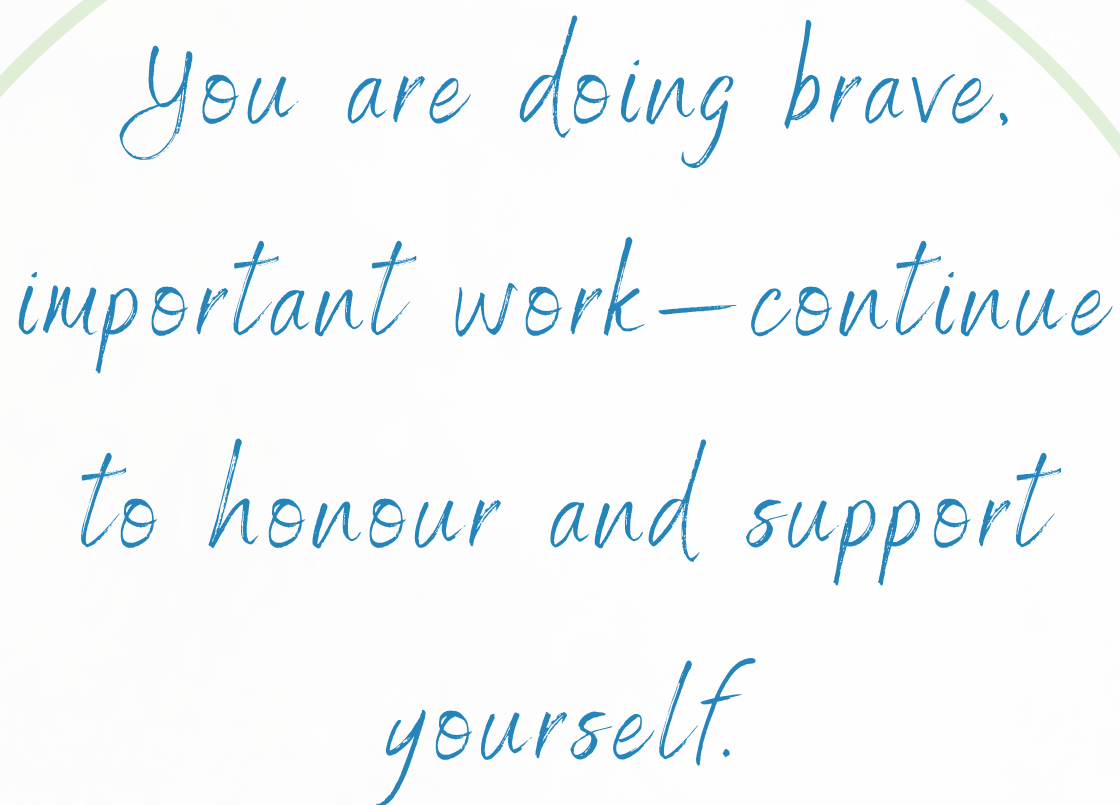 You are doing brave,
important work—continue
to honour and support
yourself.